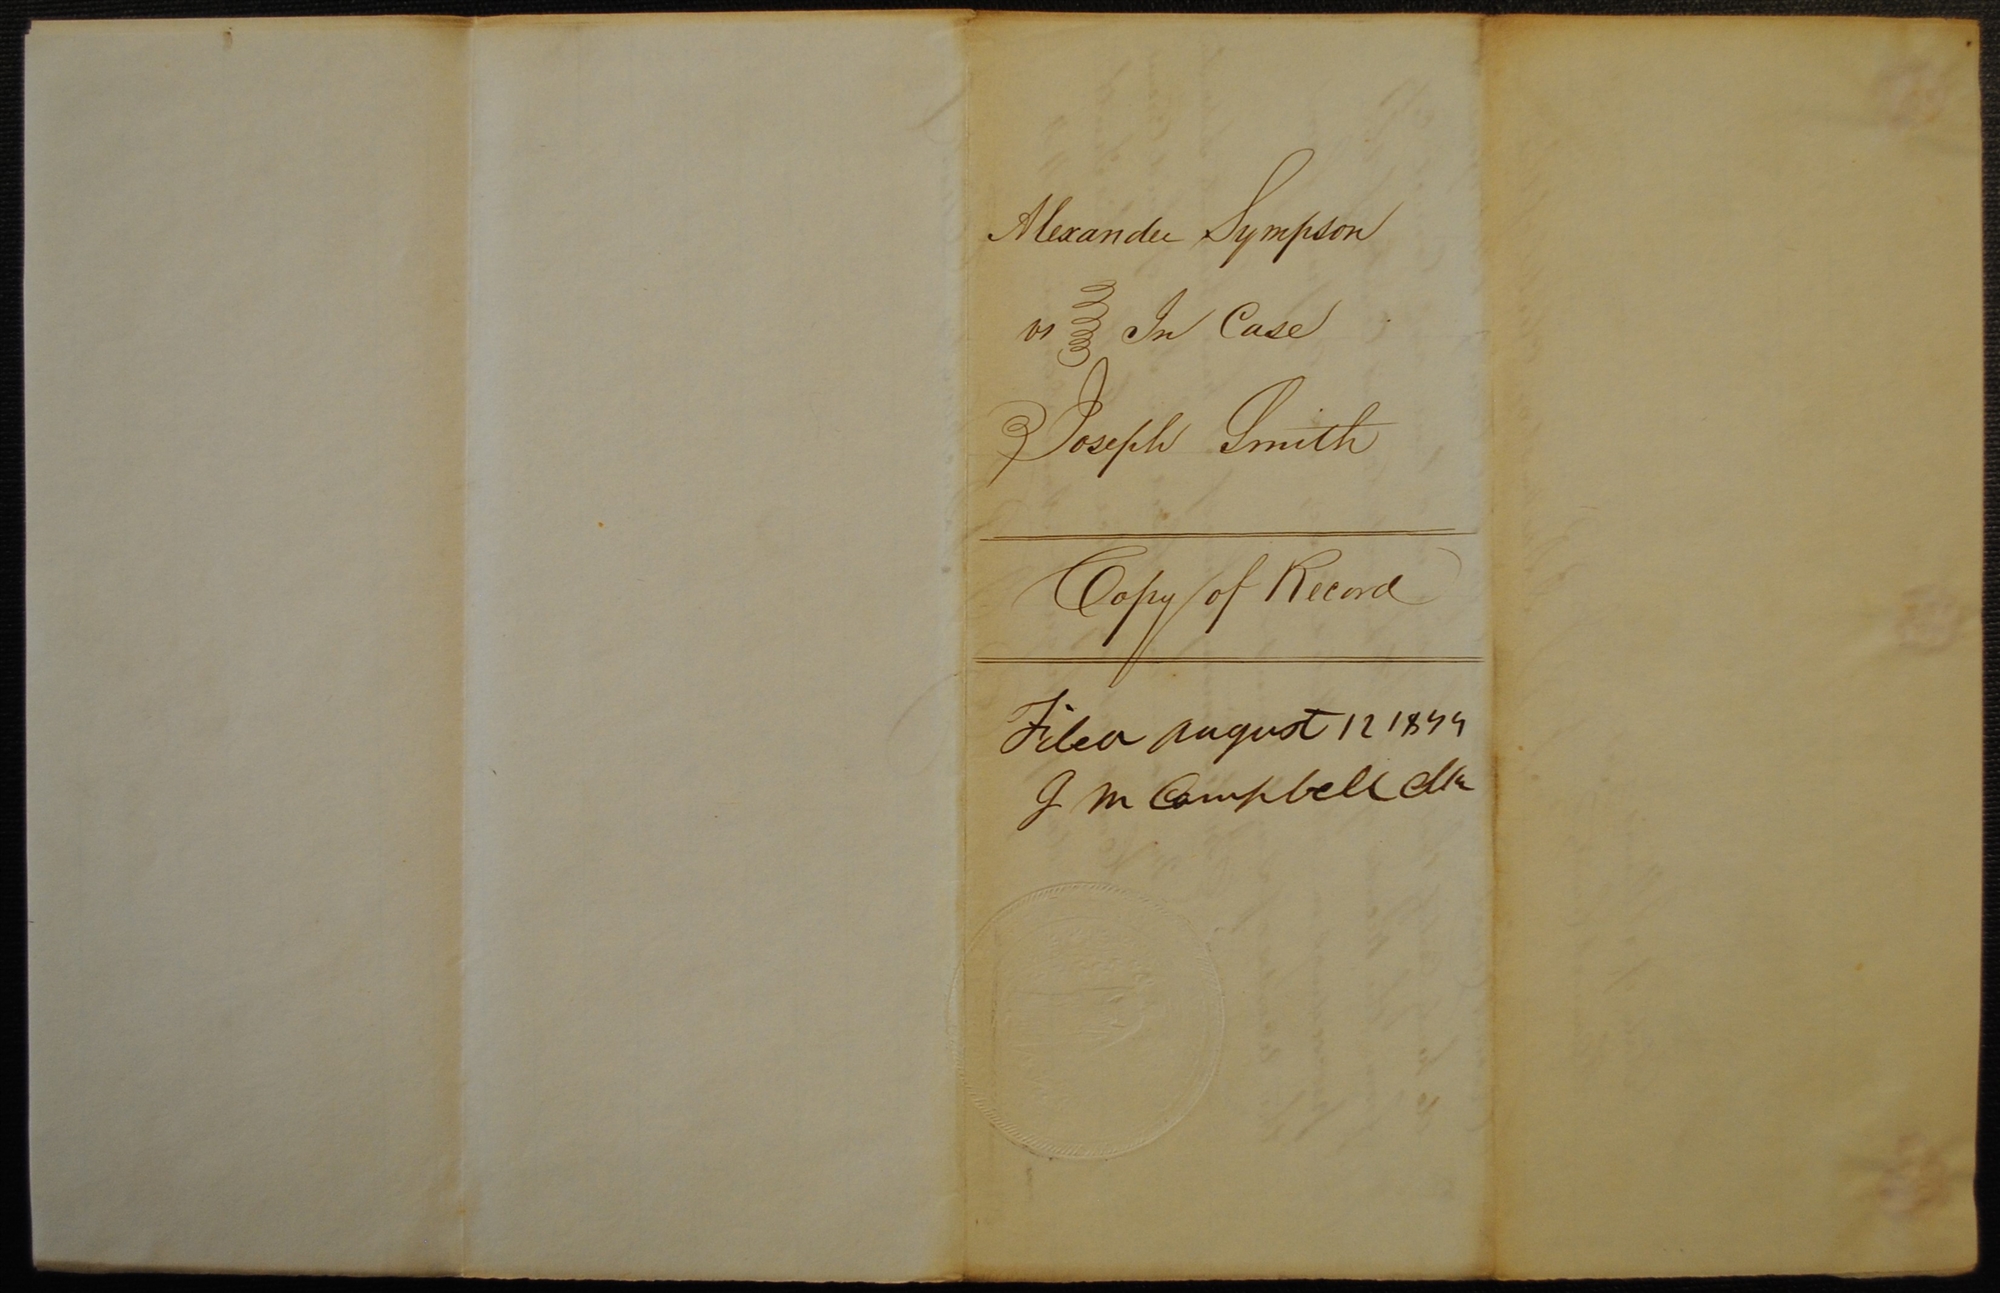 Alexander Sympson
vs In Case
Joseph Smith
Copy of Record
Filed August 12 1844
J M Campbell Clk